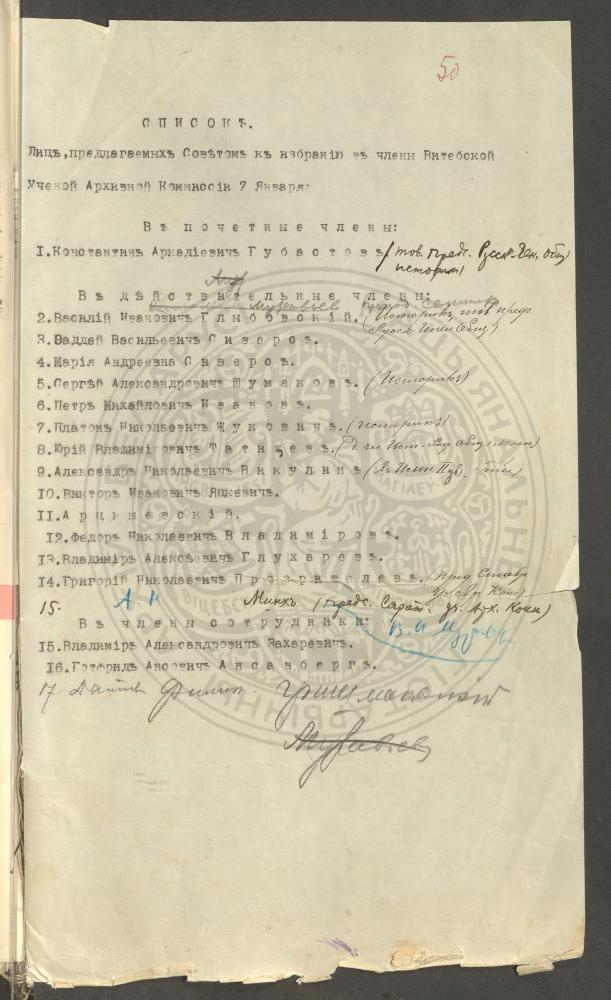 50
СПИСОКЪ.
Лицъ, предлагаемыхъ Совѣтомъ къ избранію въ члены Витебской
Ученой Архивной Коммиссіи 7 Января:
Въ почетные члены:
1.Константинъ Аркадіевичъ Губастовъ (тов. предс. Русск. Ген. Общ.
историкъ)
Въ дѣйствительные члены:
2.Василій Ивановичъ Глыбовскій.
3.Ѳаддей Васильевичъ Сиверсъ.
4.Марія Андреевна Сиверсъ.
5.Сергѣй Александровичъ Шумаковъ. (Историкъ)
6.Петръ Михайловичъ Ивановъ.
7.Платонъ Николаевичъ Жуковичъ. (историкъ)
8.Юрій Владиміровичъ Татищевъ.
9.Александръ Николаевичъ Викулинъ
10.Викторъ Ивановичъ Яшкевичъ.
11.Арцишевскій.
12.Федоръ Николаевичъ Владиміровъ.
13.Владиміръ Алексѣевичъ Глухаревъ.
14.Григорій Николаевичъ Прозрителевъ. (пред. Ставр.
15. А. Н Минхъ (предс. Сарат. уч. Арх. Комм)
Въ члены сотрудники:
15.Владиміръ Александровичъ Захаревичъ.
16.Готфридъ Ансовичъ Ансанбергъ.
17.
Муравьев